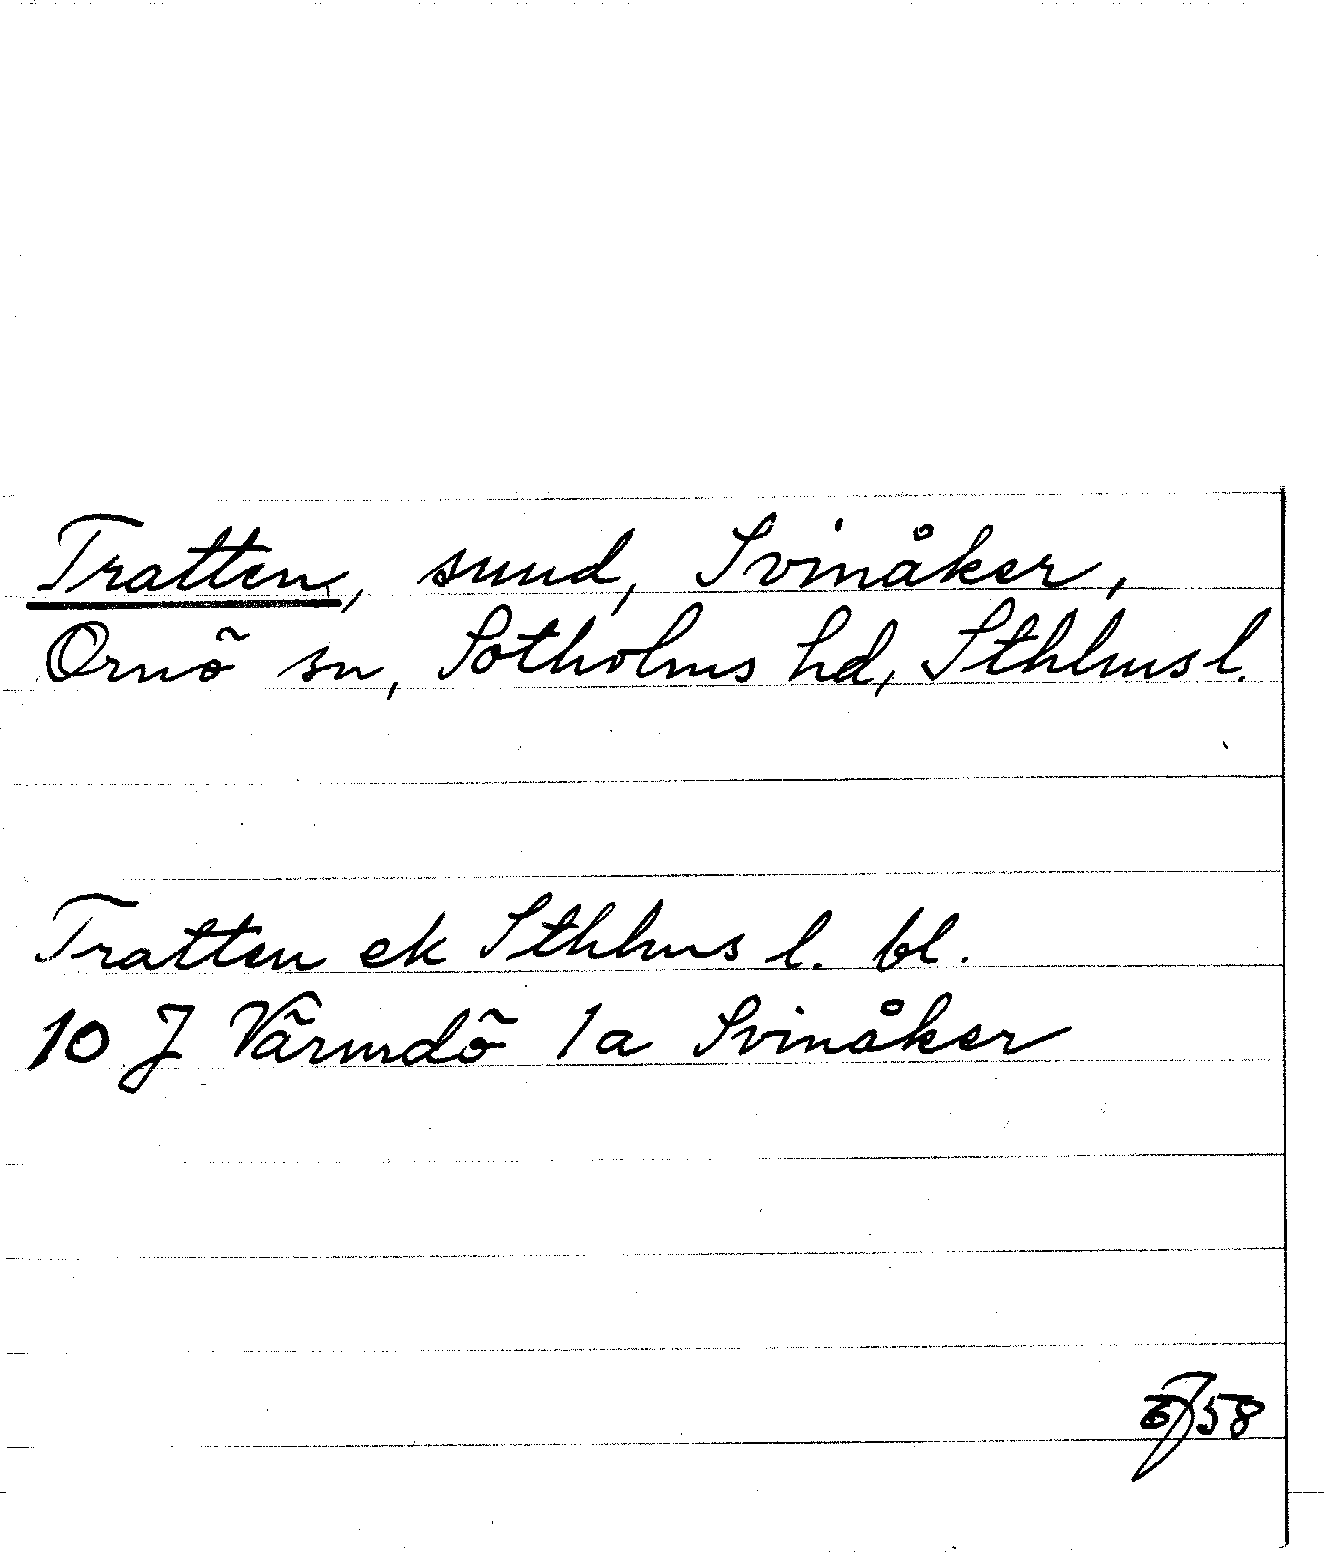 Tratten, sund, Svinåker,
Ornö sn, Sotholms hd, Sthlms l.
Tratten ek Sthlms l. bl.
10 J Värmdö 1a Svinåker
58